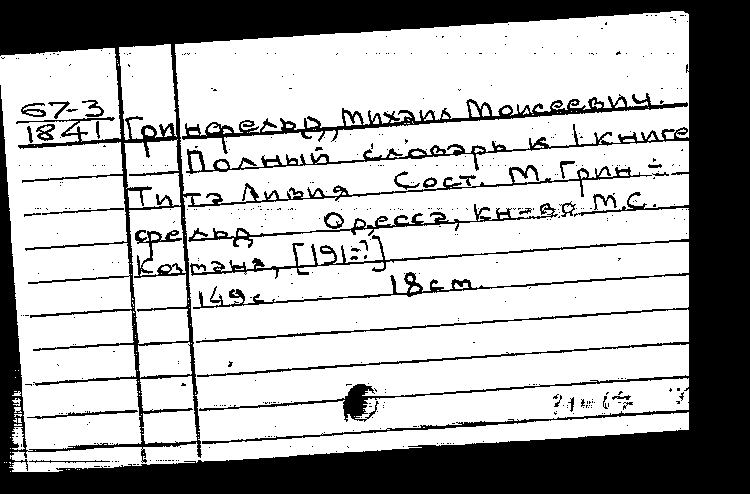 67-3
1841 Гринфельд, Михаил Моисеевич.
Полный словарь к 1 книге
Тита Ливия Сост. М. Грин=
фельд Одесса, кн-во М.С.
Козмана, [191-?]
149 с. 18 см.